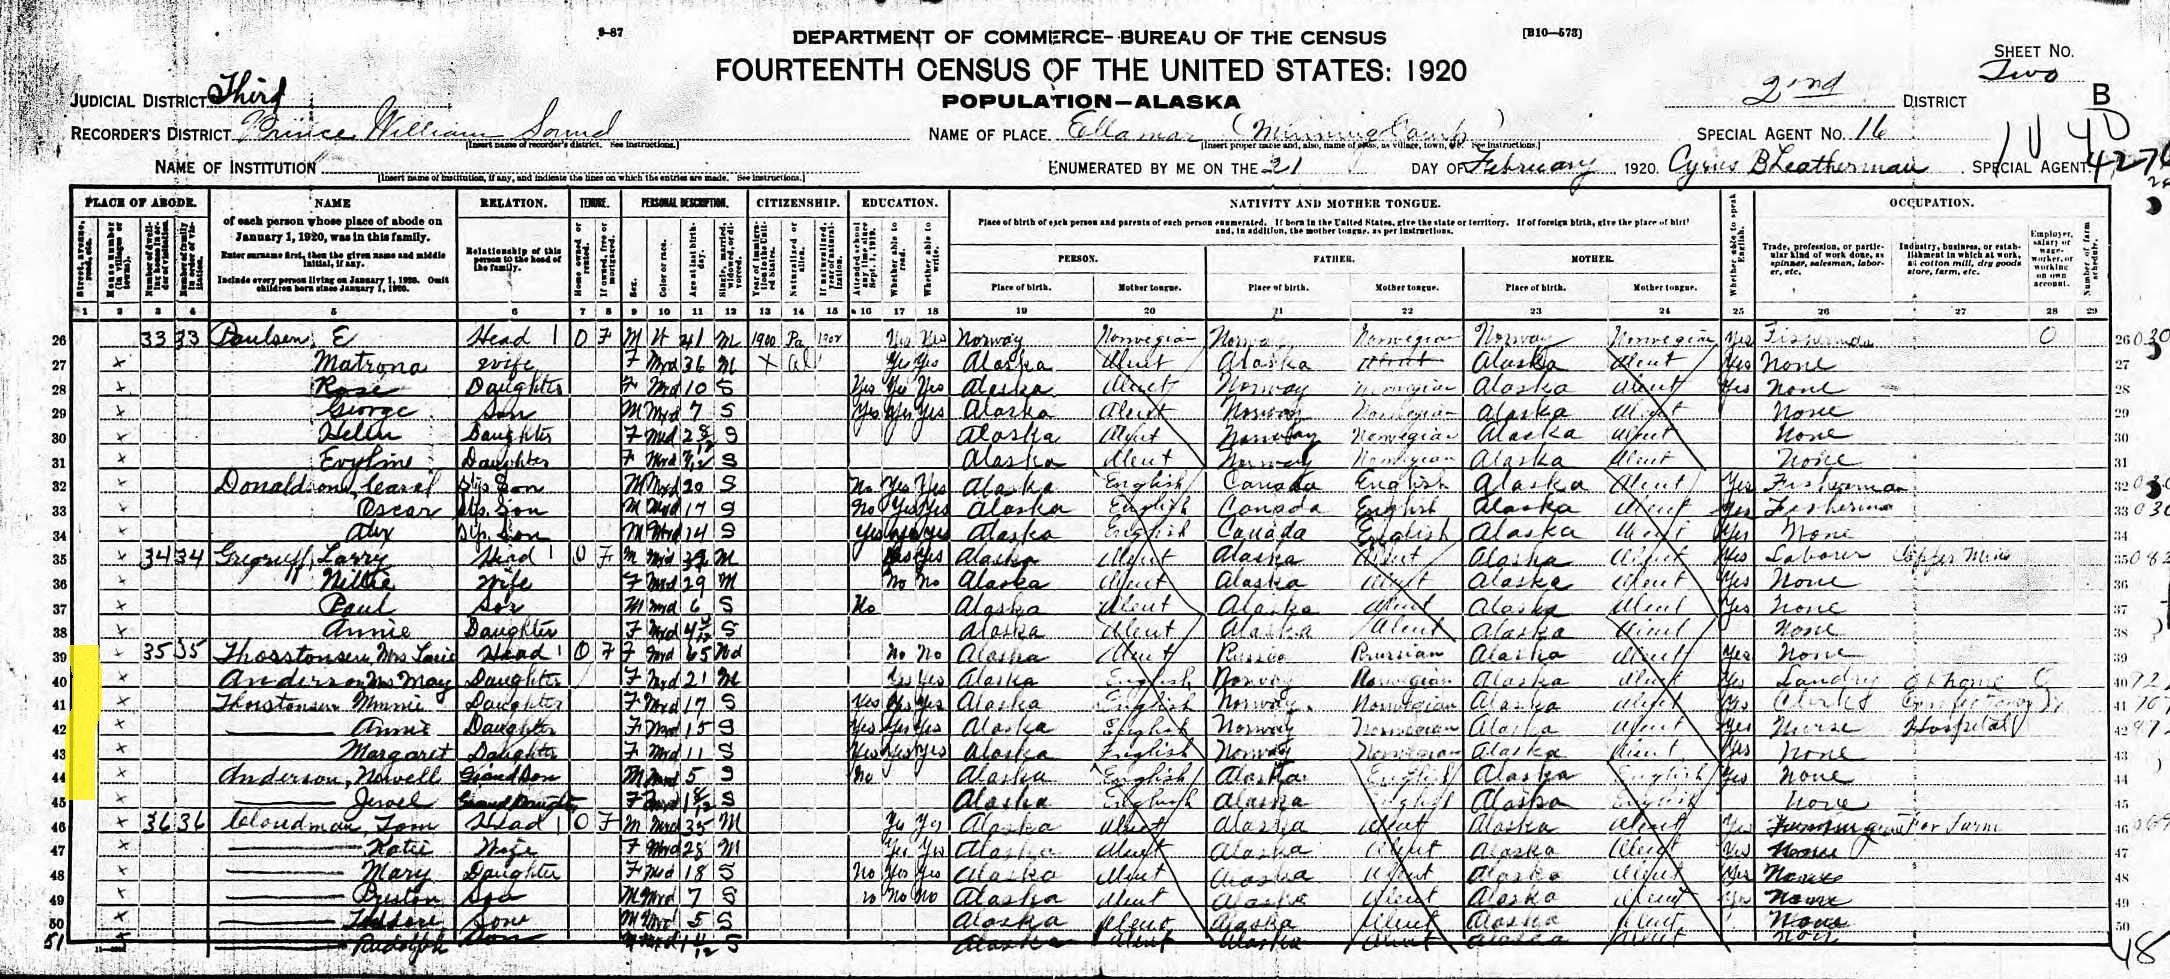 9-87
DEPARTMENT OF COMMERCE-BUREAU OF THE CENSUS
[B10-573]
FOURTEENTH CENSUS OF THE UNITED STATES: 1920
SHEET NO.
Two
POPULATION-ALASKA
JUDICIAL DISTRICT Third
2nd DISTRICT
B
RECORDER'S DISTRICT Prince William Sound
NAME OF PLACE Ellamar (Minning Camp)
SPECIAL AGENT NO. 16
[Insert name of recorder's district. See instructions.]
[Insert proper name and, also, name of class, as village, town, etc. See instructions.]
NAME OF INSTITUTION
ENUMERATED BY ME ON THE 21 DAY OF February, 1920. Cyrus B Leatherman, SPECIAL AGENT.
4276
[Insert name of institution, if any, and indicate the lines on which the entries are made. See instructions.]
PLACE OF ABODE. NAME RELATION. TENURE. PERSONAL DESCRIPTION. CITIZENSHIP. EDUCATION. NATIVITY AND MOTHER TONGUE. OCCUPATION.
of each person whose place of abode on January 1, 1920, was in this family.
Enter surname first, then the given name and middle initial, if any.
Include every person living on January 1, 1920. Omit children born since January 1, 1920.
Relationship of this person to the head of the family.
Place of birth of each person and parents of each person enumerated. If born in the United States, give the state or territory. If of foreign birth, give the place of birth
and, in addition, the mother tongue, as per instructions.
PERSON. FATHER. MOTHER.
Place of birth. Mother tongue. Place of birth. Mother tongue. Place of birth. Mother tongue.
Whether able to speak English.
Trade, profession, or particular kind of work done, as spinner, salesman, laborer, etc.
Industry, business, or establishment in which at work, as cotton mill, dry goods store, farm, etc.
Employer, salary or wage worker, or working on own account.
Number of farm schedule.
1 2 3 4 5 6 7 8 9 10 11 12 13 14 15 16 17 18 19 20 21 22 23 24 25 26 27 28 29
26 33 33 Paulsen, E Head O F M W 41 M 1900 Pa Yes Yes Norway Norwegian Norway Norwegian Norway Norwegian Yes O 26
27 x Matrona Wife F Mxd 36 M x al Yes Yes Alaska Aleut Alaska Aleut Alaska Aleut Yes None 27
28 x Rose Daughter F Mxd 10 S Yes Yes Yes Alaska Aleut Norway Norwegian Alaska Aleut Yes None 28
29 x George Son M Mxd 7 S Yes Yes Yes Alaska Aleut Norway Norwegian Alaska Aleut None 29
30 x Helen Daughter F Mxd 2 8/12 S Alaska Aleut Norway Norwegian Alaska Aleut None 30
31 x Evyline Daughter F Mxd S Alaska Aleut Norway Norwegian Alaska Aleut None 31
32 x Donaldson, Step Son M Mxd 20 S No Yes Yes Alaska English Canada English Alaska Aleut Yes Fisherman 32
33 x Oscar Step Son M Mxd 17 S No Yes Yes Alaska English Canada English Alaska Aleut Yes Fisherman 33
34 x Alex Step Son M Mxd 14 S Yes Yes Yes Alaska English Canada English Alaska Aleut Yes None 34
35 x 34 34 Gregroff, Larry Head O F M Mxd M Yes Yes Alaska Aleut Alaska Aleut Alaska Aleut Yes Laborer Copper Mine 35
36 x Nillie Wife F Mxd 29 M No No Alaska Aleut Alaska Aleut Alaska Aleut Yes None 36
37 x Paul Son M Mxd 6 S No Alaska Aleut Alaska Aleut Alaska Aleut Yes None 37
38 x Annie Daughter F Mxd S Alaska Aleut Alaska Aleut Alaska Aleut None 38
39 x 35 35 Thorstonsen, Mrs Head O F F Mxd 65 Wd No No Alaska Aleut Russia Russian Alaska Aleut Yes None 39
40 x Anderson Mrs May Daughter F Mxd 21 M Yes Yes Alaska English Norway Norwegian Alaska Aleut Yes Laundry at home O 40
41 x Thorstonsen Minnie Daughter F Mxd 17 S Yes Yes Yes Alaska English Norway Norwegian Alaska Aleut Yes Confectionary W 41
42 x Annie Daughter F Mxd 15 S Yes Yes Yes Alaska English Norway Norwegian Alaska Aleut Yes Nurse Hospital 42
43 x Margaret Daughter F Mxd 11 S Yes Yes Yes Alaska English Norway Norwegian Alaska Aleut Yes None 43
44 x Anderson, Nowell Grand Son M Mxd 5 S No Alaska English Alaska English Alaska English Yes None 44
45 x Jewel Grand Daughter F Mxd 1 8/12 S Alaska English Alaska English Alaska English None 45
46 x 36 36 Cloudman, Tom Head O F M Mxd 35 M Yes Yes Alaska Aleut Alaska Aleut Alaska Aleut Yes Fur Farm 46
47 x Katie Wife F Mxd 28 M Yes Yes Alaska Aleut Alaska Aleut Alaska Aleut Yes None 47
48 x Mary Daughter F Mxd 18 S No Yes Yes Alaska Aleut Alaska Aleut Alaska Aleut Yes None 48
49 x Preston Son M Mxd 7 S No No No Alaska Aleut Alaska Aleut Alaska Aleut Yes None 49
50 x Son M Mxd 5 S Alaska Aleut Alaska Aleut Alaska Aleut None 50
51 Rudolph Son M Mxd S Alaska Aleut Alaska Aleut Alaska Aleut Non
48